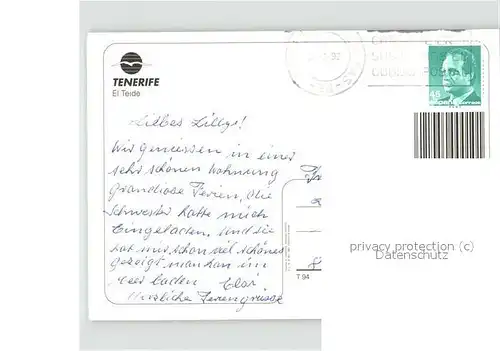 TENERIFE
El Teide
Liebes Lillys!
Wir geniessen in einer
sehr schönen Wohnung
grandiose Ferien, die
Schwester hatte mich
Eingeladen, und sie
hat mir schon viel schönes
gezeigt man kan im
Meer baden
Herzliche Feriengrüsse
45
T.94
privacy protection (c)
Datenschutz